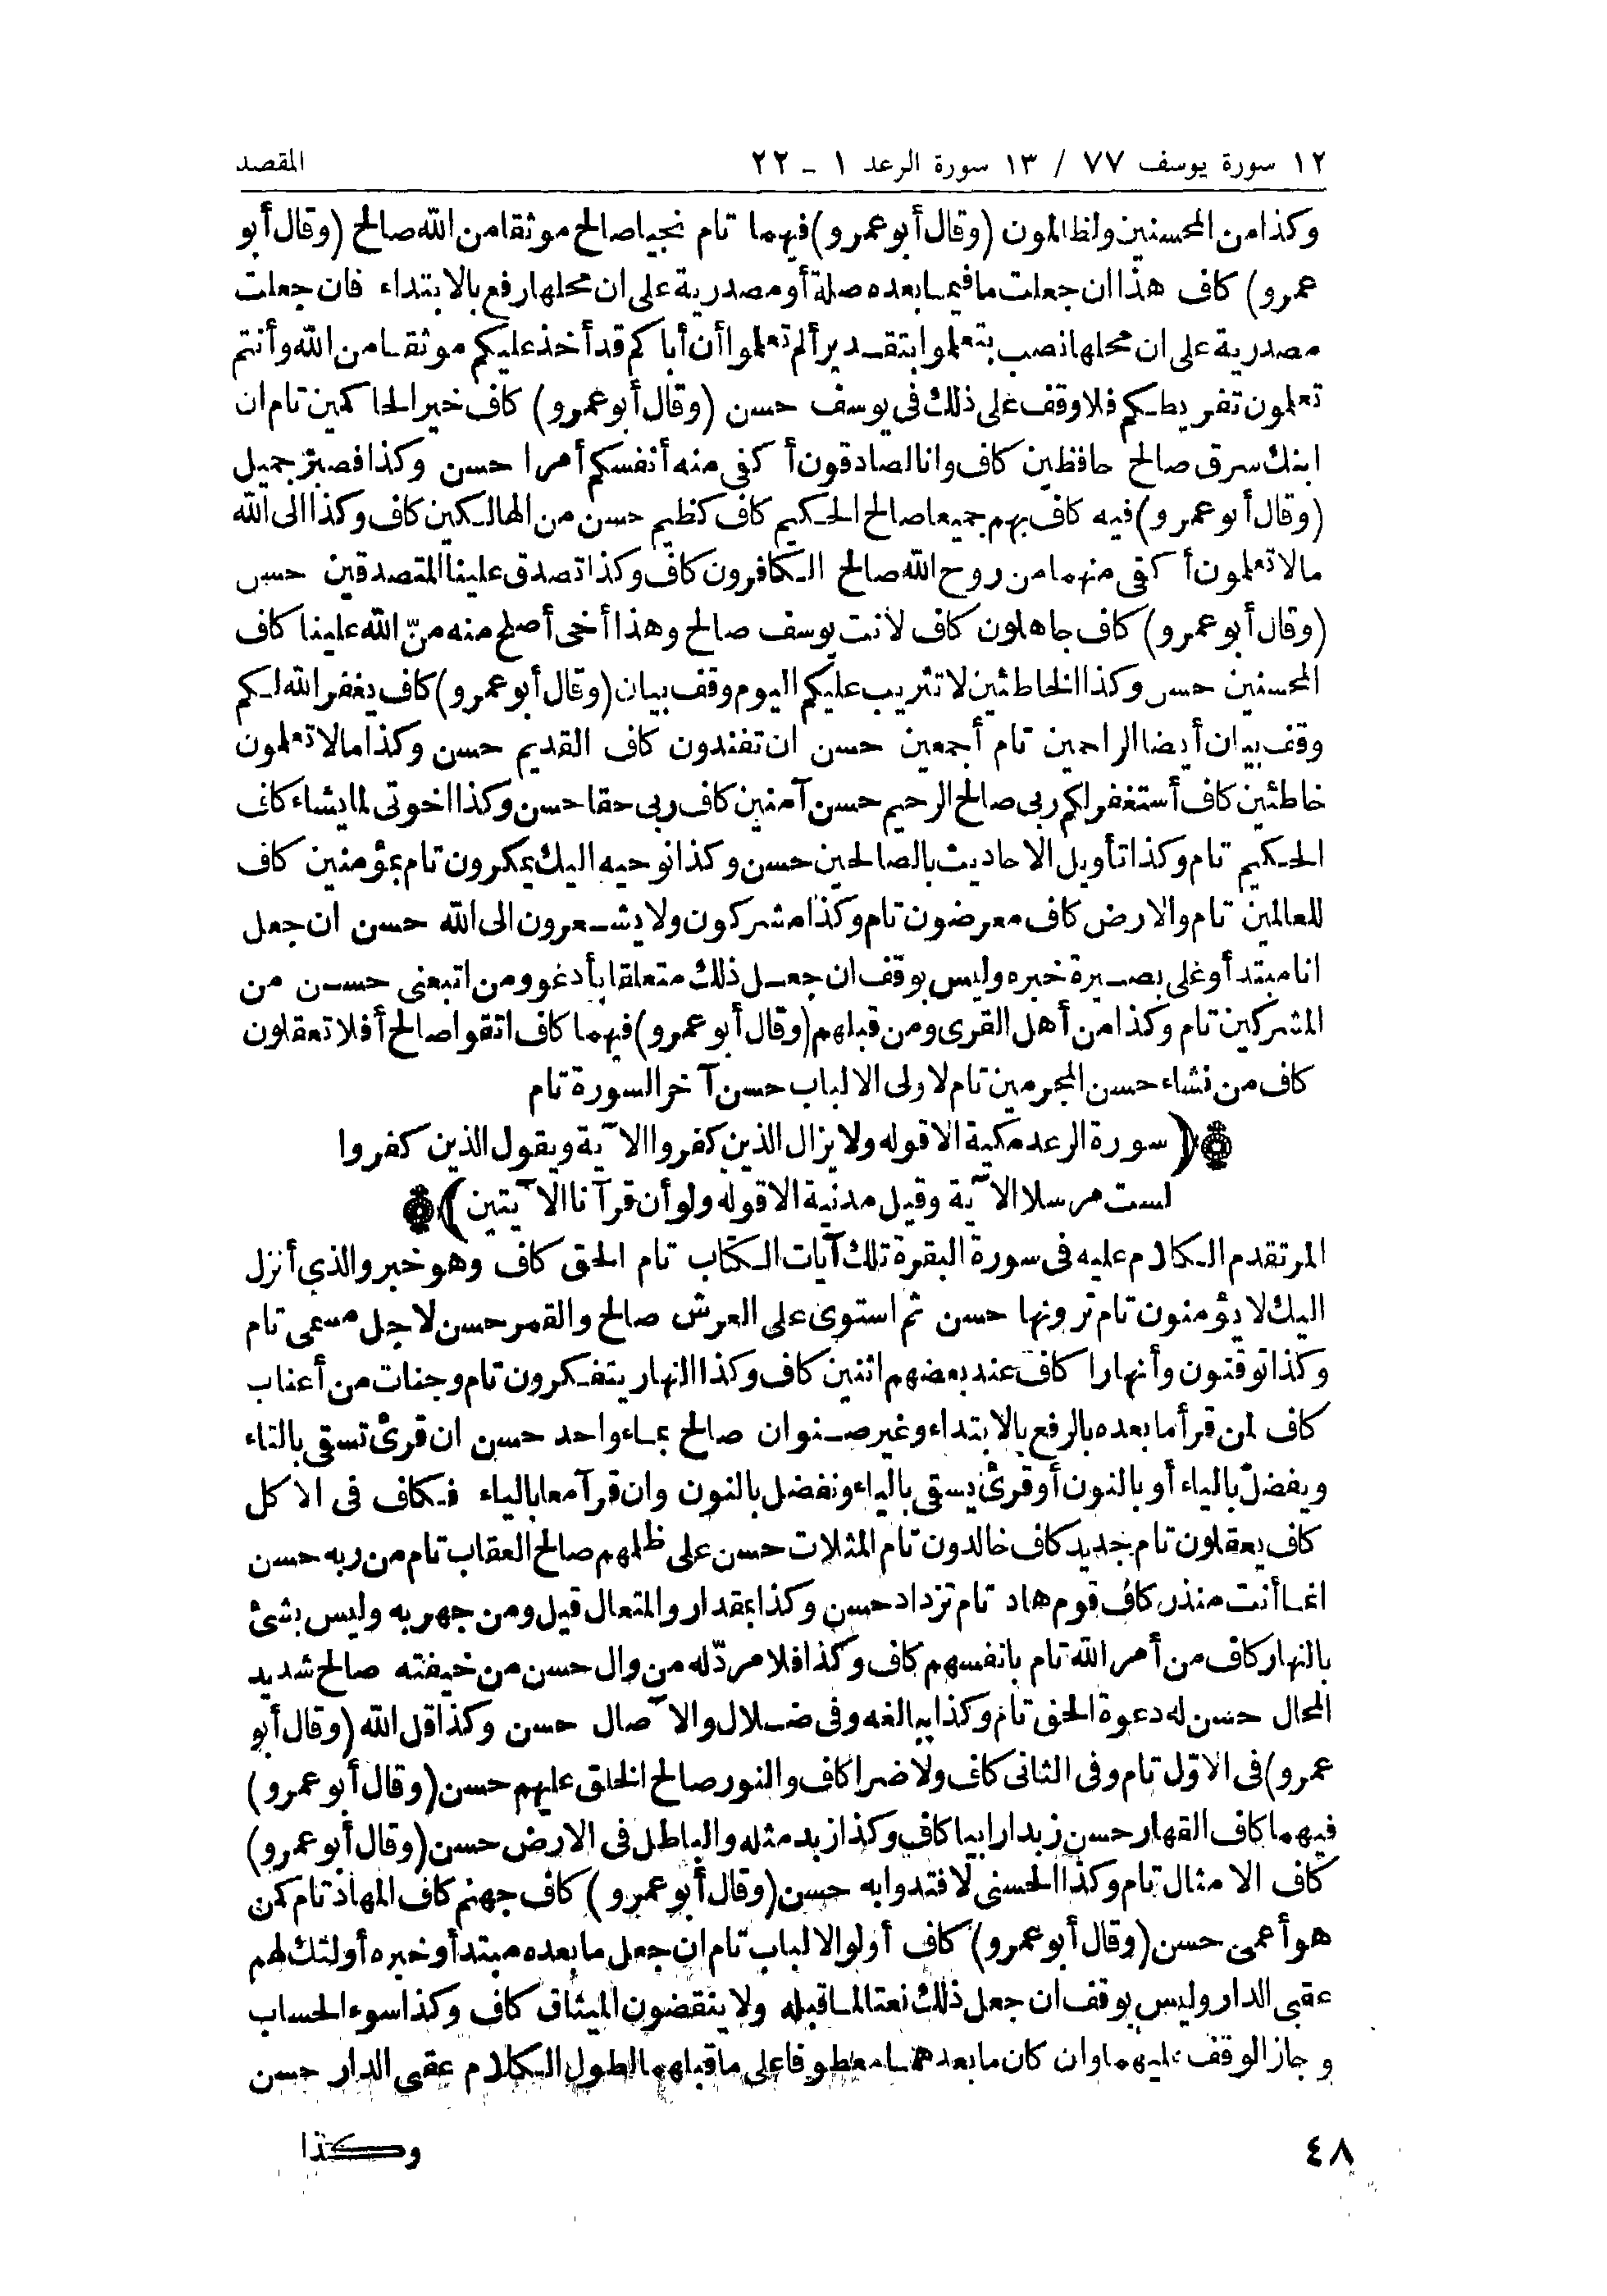 ١٢ سورة يوسف ٧٧ / ١٣ سورة الرعد ١ ـ ٢٢ المقصد
وكذا من المحسنين ولظالمون (وقال أبو عمرو) فيهما تام نجيا صالح موثقا من الله صالح (وقال أبو
عمرو) كاف هذا ان جعلت ما فيما بعده صلة أو مصدرية على ان محلها رفع بالابتداء فان جعلت
مصدرية على ان محلها نصب بتعلموا بتقدير ألم تعلموا أن أباكم قد أخذ عليكم موثقا من الله وأنتم
تعلمون تفريطكم فلا وقف على ذلك فى يوسف حسن (وقال أبو عمرو) كاف خير الحاكمين تام ان
ابنك سرق صالح حافظين كاف وانا لصادقون أكفى منه أنفسكم أمرا حسن وكذا فصبر جميل
(وقال أبو عمرو) فيه كاف بهم جميعا صالح الحكيم كاف كظيم حسن من الهالكين كاف وكذا الى الله
مالا تعلمون أكفى منهما من روح الله صالح الكافرون كاف وكذا تصدق علينا المتصدقين حسن
(وقال أبو عمرو) كاف جاهلون كاف لانت يوسف صالح وهذا أخى أصلح منه منّ الله علينا كاف
المحسنين حسن وكذا الخاطئين لا تثريب عليكم اليوم وقف بيان (وقال أبو عمرو) كاف يغفر الله لكم
وقف بيان أيضا الراحمين تام أجمعين حسن ان تفندون كاف القديم حسن وكذا مالا تعلمون
خاطئين كاف أستغفر لكم ربى صالح الرحيم حسن آمنين كاف ربى حقا حسن وكذا اخوتى لما يشاء كاف
الحكيم تام وكذا تأويل الاحاديث بالصالحين حسن وكذا نوحيه اليك يمكرون تام بمؤمنين كاف
للعالمين تام والارض كاف معرضون تام وكذا مشركون ولا يشعرون الى الله حسن ان جعل
انا مبتدأ وعلى بصيرة خبره وليس بوقف ان جعل ذلك متعلقا بأدعو ومن اتبعنى حسن من
المشركين تام وكذا من أهل القرى ومن قبلهم (وقال أبو عمرو) فيهما كاف اتقوا صالح أفلا تعقلون
كاف من نشاء حسن المجرمين تام لاولى الالباب حسن آخر السورة تام
(سورة الرعد مكية الا قوله ولا يزال الذين كفروا الآية ويقول الذين كفروا
لست مرسلا الآية وقيل مدنية الا قوله ولو أن قرآنا الآيتين)
المر تقدم الكلام عليه فى سورة البقرة تلك آيات الكتاب تام الحق كاف وهو خبر والذي أنزل
اليك لا يؤمنون تام ترونها حسن ثم استوى على العرش صالح والقمر حسن لاجل مسمى تام
وكذا توقنون وأنهارا كاف عند بعضهم اثنين كاف وكذا النهار يتفكرون تام وجنات من أعناب
كاف لمن قرأ ما بعده بالرفع بالابتداء وغير صنوان صالح بماء واحد حسن ان قرئ تسقى بالتاء
ويفضل بالياء أو بالنون أو قرئ يسقى بالياء ونفضل بالنون وان قرآ معا بالياء فكاف فى الاكل
كاف يعقلون تام جديد كاف خالدون تام المثلات حسن على ظلمهم صالح العقاب تام من ربه حسن
انما أنت منذر كاف قوم هاد تام تزداد حسن وكذا بمقدار والمتعال قيل ومن جهر به وليس بشئ
بالنهار كاف من أمر الله تام بانفسهم كاف وكذا فلا مردّ له من وال حسن من خيفته صالح شديد
المحال حسن له دعوة الحق تام وكذا ببالغه وفى ضلال والآصال حسن وكذا قل الله (وقال أبو
عمرو) فى الاوّل تام وفى الثانى كاف ولا ضرا كاف والنور صالح الخلق عليهم حسن (وقال أبو عمرو)
فيهما كاف القهار حسن زبدا رابيا كاف وكذا زبد مثله والباطل فى الارض حسن (وقال أبو عمرو)
كاف الامثال تام وكذا الحسنى لافتدوا به حسن (وقال أبو عمرو) كاف جهنم كاف المهاد تام كمن
هو أعمى حسن (وقال أبو عمرو) كاف أولوا الالباب تام ان جعل ما بعده مبتدأ وخبره أولئك لهم
عقبى الدار وليس بوقف ان جعل ذلك نعتا لما قبله ولا ينقضون الميثاق كاف وكذا سوء الحساب
وجاز الوقف عليهما وان كان ما بعدهما معطوفا على ما قبلهما لطول الكلام عقبى الدار حسن
وكذا
٤٨